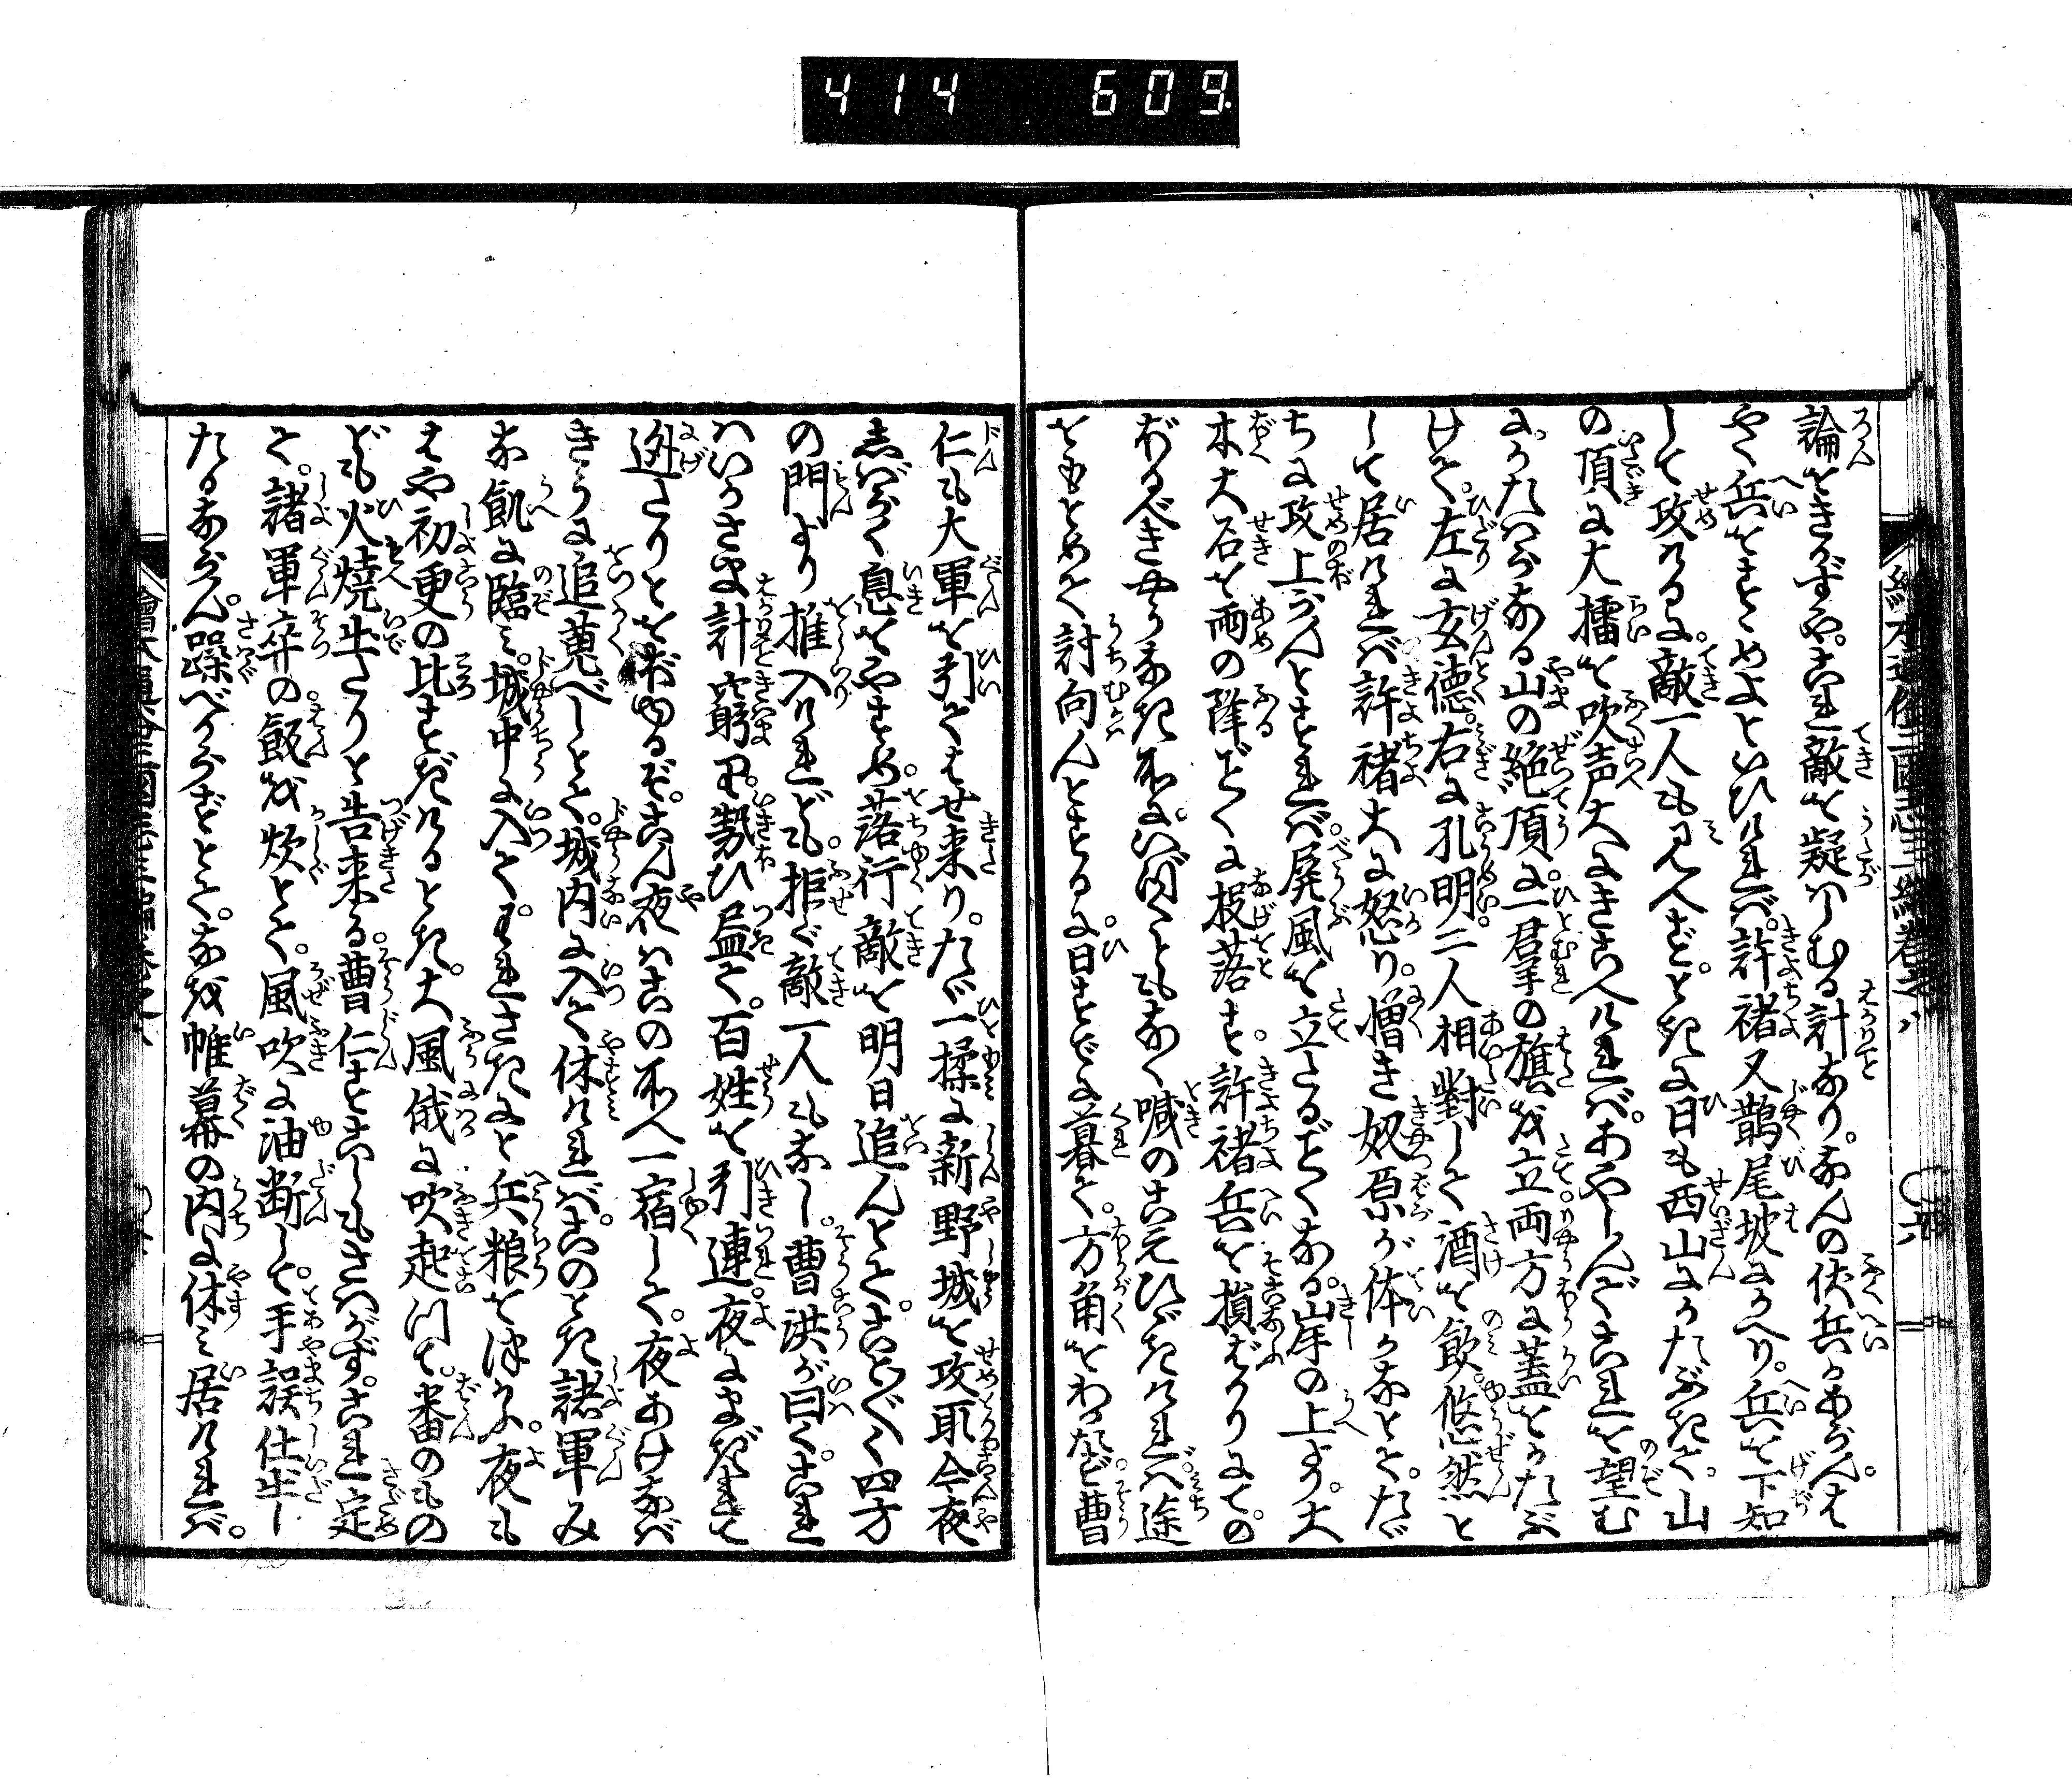 414 609
論をきかずや。これ敵を疑はしむる計なり。なんの伏兵かあらん。は
やく兵をすゝめよといひければ。許褚又鵲尾坡にかへり。兵を下知
して攻けるに。敵一人も見へず。ときに日も西山にかたぶきて。山
の頂に大擂を吹声大にきこへければ。あやしんでこれを望む
にかたはらなる山の絶頂に。一群の旗を立両方に蓋をかたぶ
けて。左に玄徳。右に孔明二人相對して酒を飲。悠然と
して居ければ許褚大に怒り。憎き奴原が体かなとて。たゞ
ちに攻上らんとすれば。屏風を立たるごとくなる岸の上より。大
木大石を雨の降ごとくに投落す。許褚兵を損ずばかりにて。の
ぼるべきやうなき所に。いづくともなく喊のこゑひゞきければ。途
をもとめて討向んとするに。日すでに暮て。方角をわかたず曹
仁も大軍を引てはせ来り。たゞ一揉に新野城を攻取今夜
しばらく息をやすめ。落行敵を明日追んとて。ことごとく四方
の門より推入けれども。拒ぐ敵一人もなし。曹洪が曰く。これ
はいかさま計窮り。勢ひ尽て。百姓を引連。夜にまぎれて
逃たりとおぼゆるぞ。こん夜はこの所へ一宿して。夜あけなば
きうに追蒐べしとて。城内に入て休ければ。このとき諸軍み
な飢に臨み。城中に入て。われさきにと兵粮をつかふ。夜も
はや初更の比すぎけるとき。大風俄に吹起つて。番のもの
ども火焼出たりと告来る。曹仁すこしもさはがず。これ定
て。諸軍卒の飯を炊とて。風吹に油断して。手誤仕出し
たるならん。躁べからずとて。なを帷幕の内に休み居ければ。